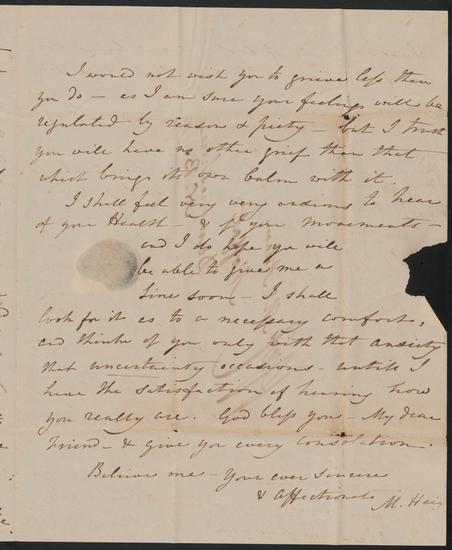 I would not wish you to grieve less than
you do — as I am sure your feelings will be
regulated by reason & piety — but I trust
you will have no other grief than that
which brings its own balm with it.
I shall feel very very anxious to hear
of your Health — & of your movements —
and I do hope you will
be able to give me a
Line soon — I shall
look for it as to a necessary comfort,
and think of you only with that anxiety
that uncertainty occasions — untill I
have the satisfaction of hearing how
you really are. God bless you — My dear
Friend — & give you every consolation.
Believe me — Your ever sincere
& affectionate M.